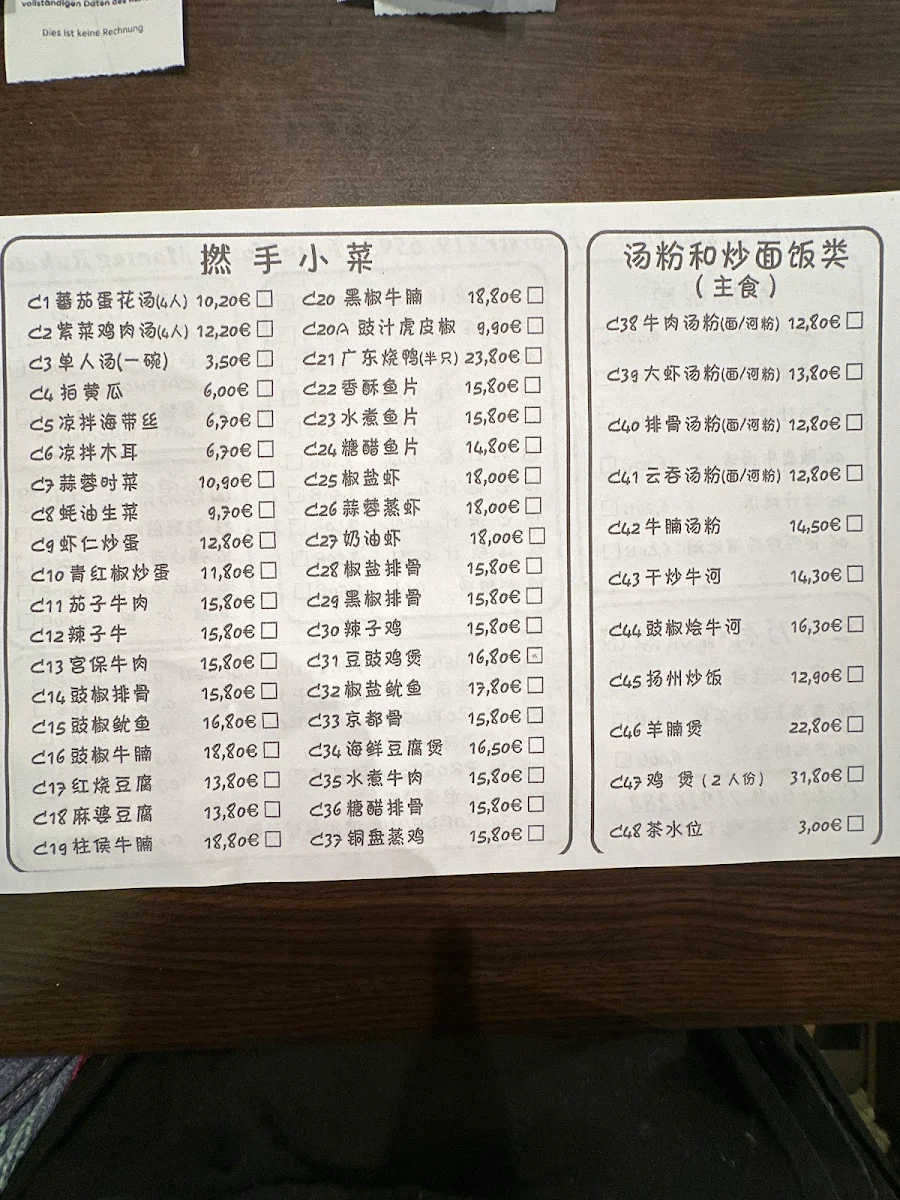 vollständigen Daten des
Dies ist keine Rechnung
撚手小菜
C1 蕃茄蛋花汤(4人) 10,20€
C2 紫菜鸡肉汤(4人) 12,20€
C3 单人汤(一碗) 3,50€
C4 拍黄瓜 6,00€
C5 凉拌海带丝 6,70€
C6 凉拌木耳 6,70€
C7 蒜蓉时菜 10,90€
C8 蚝油生菜 9,70€
C9 虾仁炒蛋 12,80€
C10 青红椒炒蛋 11,80€
C11 茄子牛肉 15,80€
C12 辣子牛 15,80€
C13 宫保牛肉 15,80€
C14 豉椒排骨 15,80€
C15 豉椒鱿鱼 16,80€
C16 豉椒牛腩 18,80€
C17 红烧豆腐 13,80€
C18 麻婆豆腐 13,80€
C19 柱侯牛腩 18,80€
C20 黑椒牛腩 18,80€
C20A 豉汁虎皮椒 9,90€
C21 广东烧鸭(半只) 23,80€
C22 香酥鱼片 15,80€
C23 水煮鱼片 15,80€
C24 糖醋鱼片 14,80€
C25 椒盐虾 18,00€
C26 蒜蓉蒸虾 18,00€
C27 奶油虾 18,00€
C28 椒盐排骨 15,80€
C29 黑椒排骨 15,80€
C30 辣子鸡 15,80€
C31 豆豉鸡煲 16,80€
C32 椒盐鱿鱼 17,80€
C33 京都骨 15,80€
C34 海鲜豆腐煲 16,50€
C35 水煮牛肉 15,80€
C36 糖醋排骨 15,80€
C37 铜盘蒸鸡 15,80€
汤粉和炒面饭类
(主食)
C38 牛肉汤粉(面/河粉) 12,80€
C39 大虾汤粉(面/河粉) 13,80€
C40 排骨汤粉(面/河粉) 12,80€
C41 云吞汤粉(面/河粉) 12,80€
C42 牛腩汤粉 14,50€
C43 干炒牛河 14,30€
C44 豉椒烩牛河 16,30€
C45 扬州炒饭 12,90€
C46 羊腩煲 22,80€
C47 鸡 煲 (2人份) 31,80€
C48 茶水位 3,00€